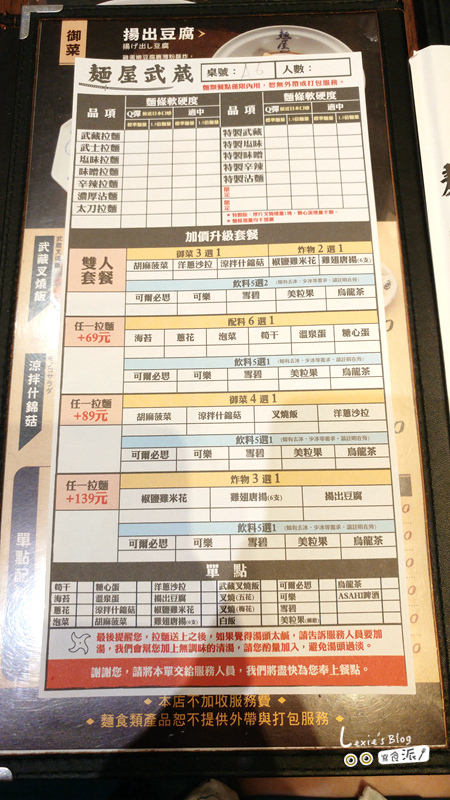 御菜
揚出豆腐
揚げ出し豆腐
麵屋武藏
桌號：
人數：
麵類餐點僅限內用，恕無外帶或打包服務。
品項
麵條軟硬度
Q彈
適中
標準麵量 1.5倍麵量 標準麵量 1.5倍麵量
武藏拉麵
武士拉麵
塩味拉麵
味噌拉麵
辛辣拉麵
濃厚沾麵
太刀拉麵
品項
麵條軟硬度
Q彈
適中
標準麵量 1.5倍麵量 標準麵量 1.5倍麵量
特製武藏
特製塩味
特製味噌
特製辛辣
特製沾麵
加價升級套餐
雙人套餐
御菜3選1
炸物2選1
胡麻菠菜 洋蔥沙拉 涼拌什錦菇 椒鹽雞米花 雞翅唐揚(6支)
飲料5選2
可爾必思 可樂 雪碧 美粒果 烏龍茶
任一拉麵
+69元
配料6選1
海苔 蔥花 泡菜 筍干 溫泉蛋 糖心蛋
飲料5選1
可爾必思 可樂 雪碧 美粒果 烏龍茶
任一拉麵
+89元
御菜4選1
胡麻菠菜 涼拌什錦菇 叉燒飯 洋蔥沙拉
飲料5選1
可爾必思 可樂 雪碧 美粒果 烏龍茶
任一拉麵
+139元
炸物3選1
椒鹽雞米花 雞翅唐揚(6支) 揚出豆腐
飲料5選1
可爾必思 可樂 雪碧 美粒果 烏龍茶
單點
筍干 糖心蛋 洋蔥沙拉 武藏叉燒飯 可爾必思 烏龍茶
海苔 溫泉蛋 胡麻菠菜 叉燒(五花) 可樂 ASAHI啤酒
蔥花 涼拌什錦菇 椒鹽雞米花 叉燒(梅花) 雪碧
泡菜 胡麻菠菜 雞翅唐揚(6支) 白飯 美粒果
最後提醒您，拉麵送上之後，如果覺得湯頭太鹹，請告訴服務人員要加
湯，我們會幫您加上無調味的清湯，請您酌量加入，避免湯頭過淡。
謝謝您，請將本單交給服務人員，我們將盡快為您奉上餐點。
本店不加收服務費
麵食類產品恕不提供外帶與打包服務
武藏叉燒飯
涼拌什錦菇
單點
Lexie's Blog
窩食派！